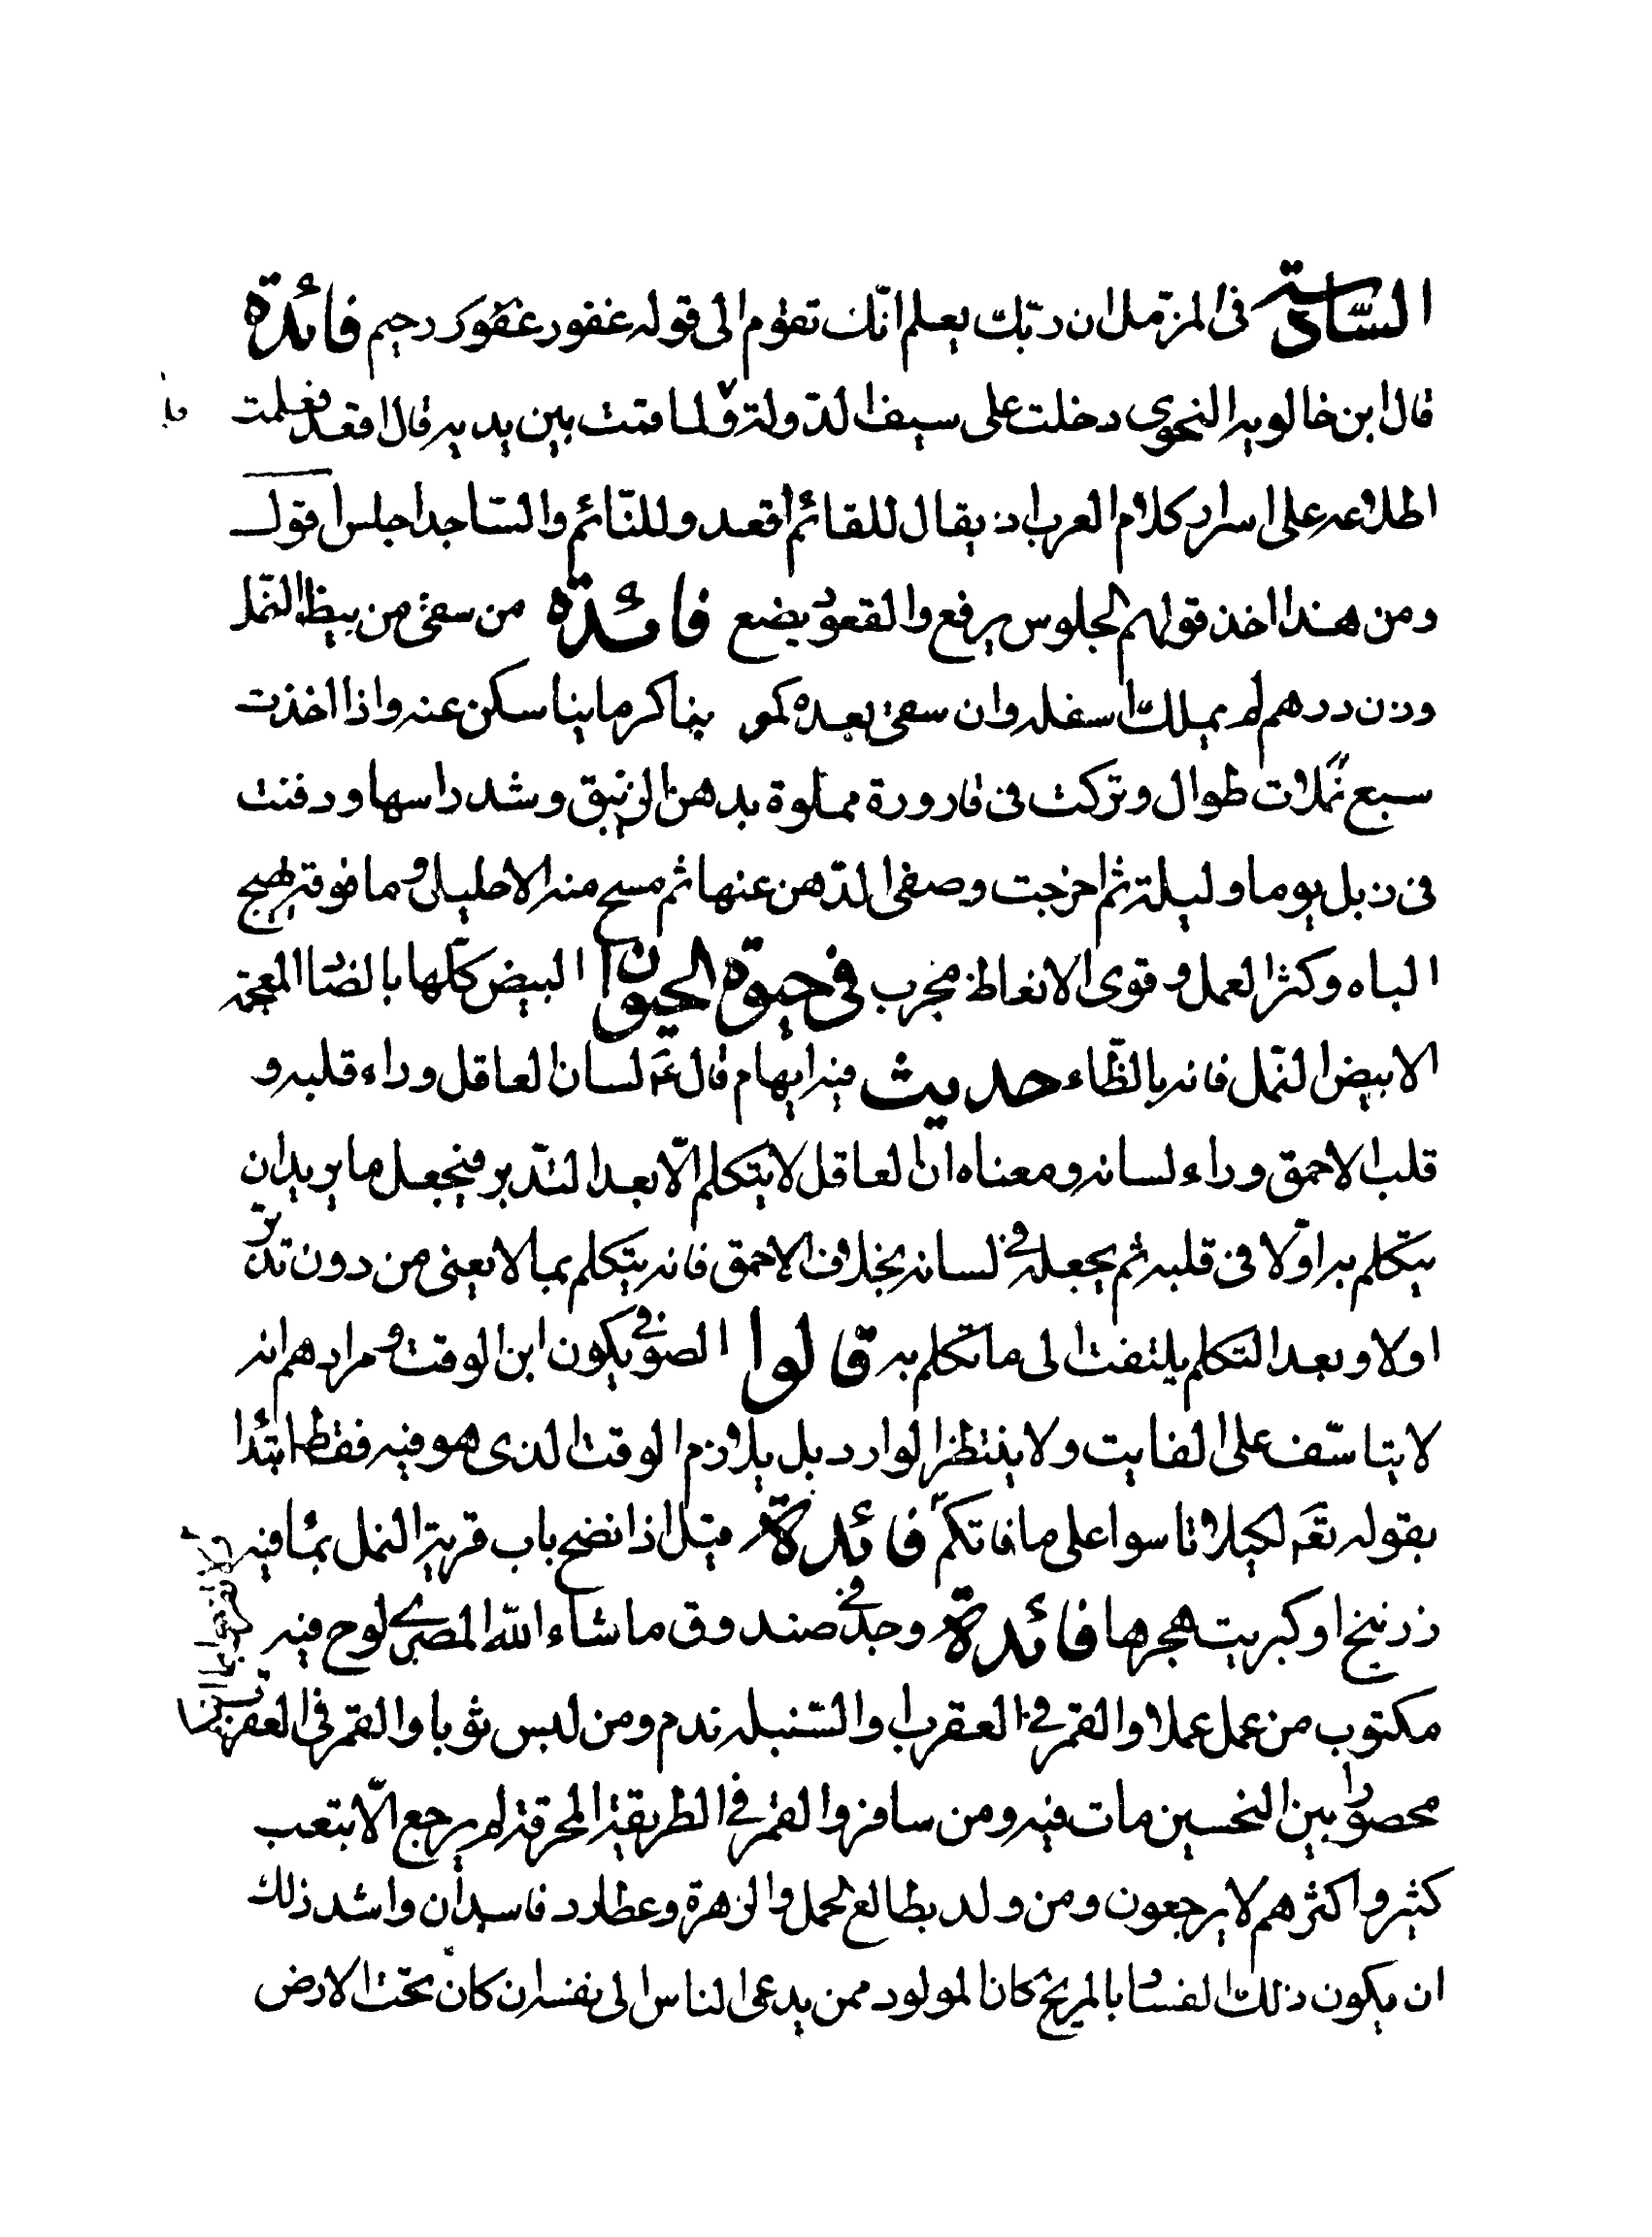 السّادسة فى المزمّل ان ربّك يعلم انّك تقوم الى قوله غفور رحيم فائدة
قال ابن خالويه النحوى دخلت على سيف الدّولة فلما قمت بين يديه قال اقعد فعلمت
اطلاعه على اسرار كلام العرب اذ يقال للقائم اقعد وللنّائم والسّاجد اجلس اقول
ومن هذا اخذ قولهم الجلوس يرفع والقعود يضع فائدة من سقى من بيظ النّمل
وزن درهم لم يملك اسفله وان سقى بعده كمو بنا كرمابنا سكن عنه واذا اخذت
سبع نملات طوال وتركت فى قارورة مملوة بدهن الزنبق وشد راسها ودفنت
فى زبل يوما وليلة ثم اخرجت وصفى الدّهن عنها ثم مسح منه الاحليل وما فوقه يهيج
الباه وكثر العمل وقوى الانعاظ مجرب فى حيوة الحيوان البيض كلّها بالضاد المعجمة
الا بيض النّمل فانه بالظّاء حديث فيه ايهام قال ع لسان العاقل وراء قلبه و
قلب الاحمق وراء لسانه ومعناه ان العاقل لا يتكلم الّا بعد التّدبر فيجعل ما يريد ان
يتكلم به اوّلا فى قلبه ثم يجعله فى لسانه بخلاف الاحمق فانه يتكلم بما لا يعنى من دون تدبّر
اولا وبعد التكلم يلتفت الى ما تكلم به قالوا الصوفى يكون ابن الوقت ومرادهم انه
لا يتاسّف على الفايت ولا ينتظر الوارد بل يلازم الوقت الذى هو فيه فقط ابتدا
بقوله تعه لكيلا تاسوا على ما فاتكم فائدة قيل اذا نضح باب قرية النمل بما فيه
زرنيخ او كبريت هجرها فائدة وجد فى صندوق ماشاء الله المصرى لوح فيه
مكتوب من عمل عملا والقمر فى العقرب او السّنبله ندم ومن لبس ثوبا والقمر فى العقرب
محصورا بين النحسين مات فيه ومن سافر والقمر فى الطريقة المحرقة لم يرجع الّا بتعب
كثير واكثرهم لا يرجعون ومن ولد بطالع الحمل والزهرة وعطارد فاسدان واشد ذلك
ان يكون ذلك الفساد بالمريخ كان المولود ممن يدعى الناس الى نفسه ان كان تحت الارض